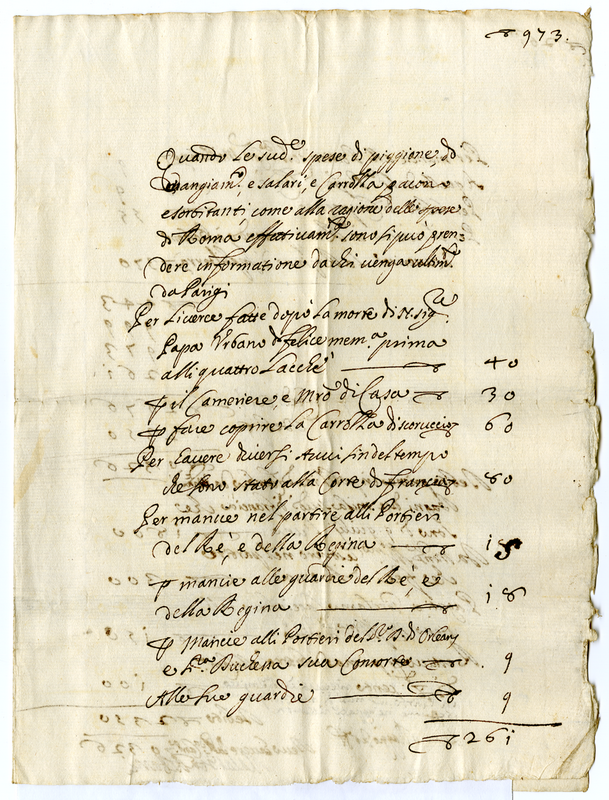 973.
Quando le sud.e spese di piggione, di
mangiam.ti e salari, e Carrozza paiono
esorbitanti come alla ragione delle spese
di Roma effettivam.te sono si può pren-
dere informatione da chi venga ultim.te
da Parigi
Per Livree fatte dopò la morte di N. Sig.re
Papa Urbano di felice mem.a prima
alli quattro Lacchè 40
p il Cameriere, e Mro di Casa 30
p fare coprire la Carrozza di scoruccio 60
Per havere diversi Avvisi in del tempo
che sono stato alla Corte di francia 80
Per mancie nel partire alli Portieri
del Rè, e della Regina 18
p mancie alle guardie del Rè, e
della Regina 18
p Mancie alli Portieri del S.r D. di Orleans
e S.ra Duchessa sua Consorte 9
Alle sue guardie 9
261